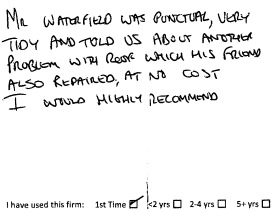 MR WATERFIELD WAS PUNCTUAL, VERY
TIDY AND TOLD US ABOUT ANOTHER
PROBLEM WITH ROOF WHICH HIS FRIEND
ALSO REPAIRED, AT NO COST
I WOULD HIGHLY RECOMMEND
I have used this firm: 1st Time ☑ <2 yrs ☐ 2-4 yrs ☐ 5+ yrs ☐